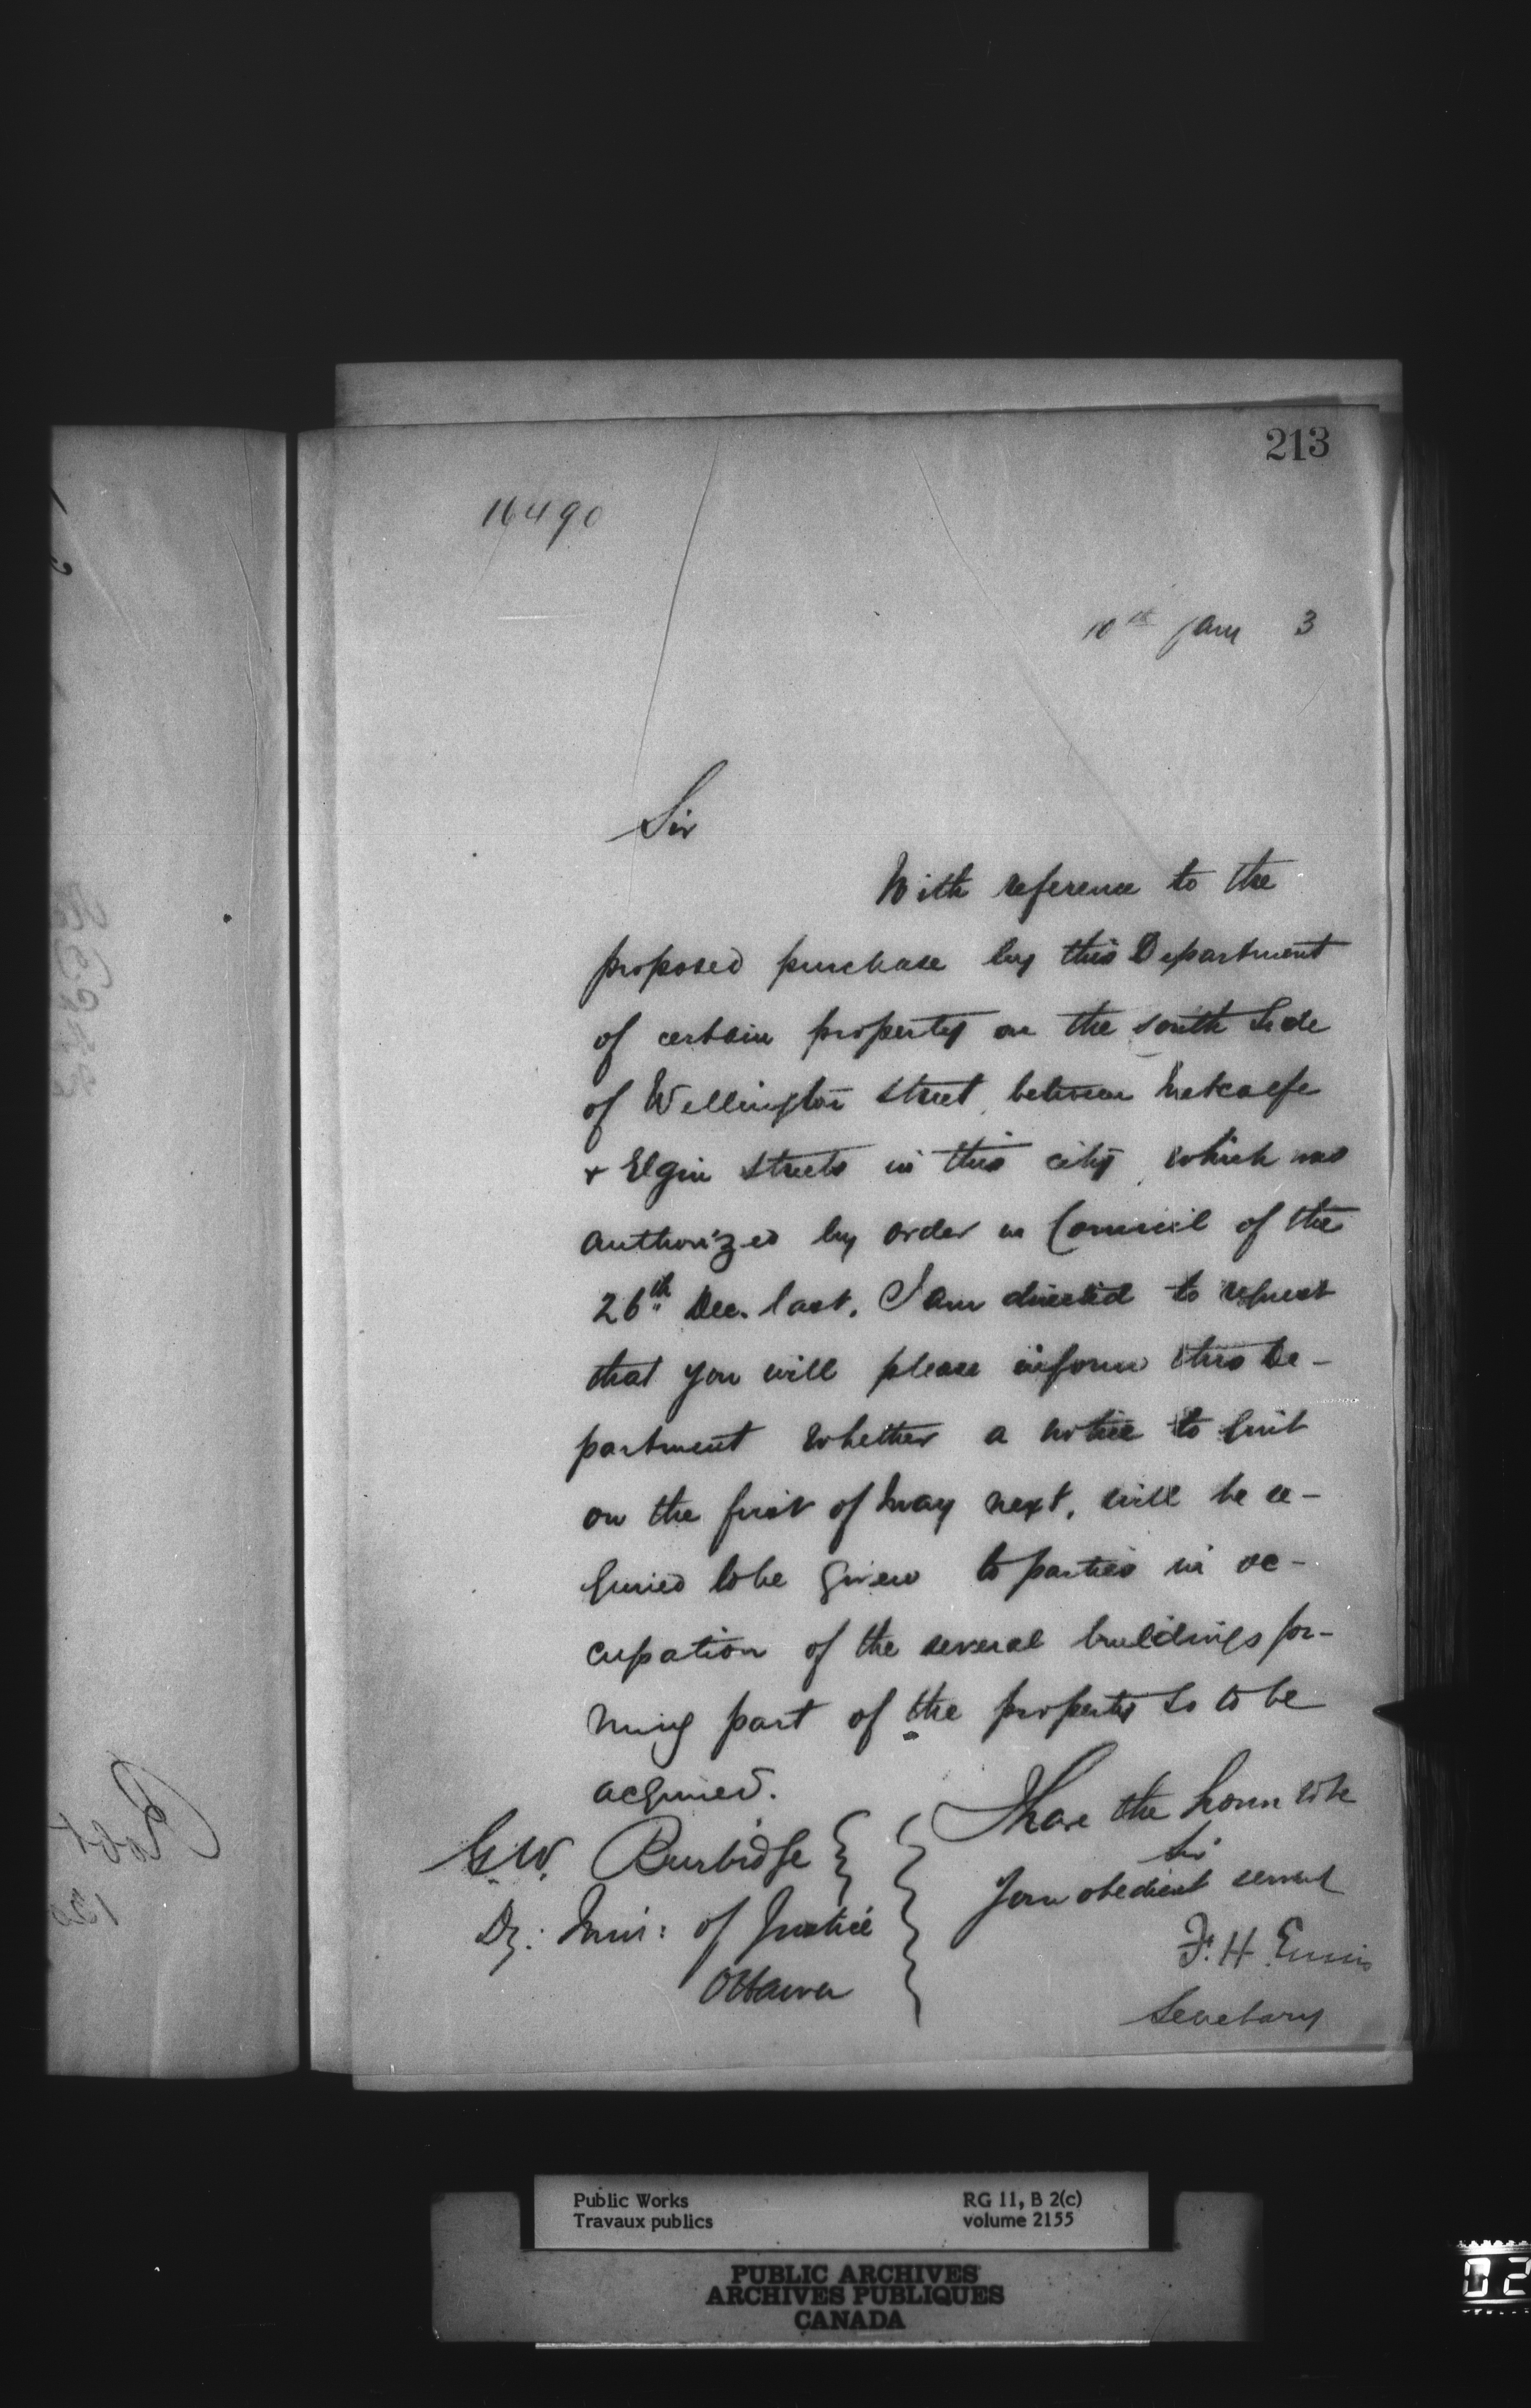 213
16490
10th Jany 3
Sir
With reference to the
proposed purchase by this Department
of certain property on the south side
of Wellington street, between Metcalfe
& Elgin streets in this city, which was
authorized by order in Council of the
26th Dec. last, I am directed to request
that you will please inform this De-
partment whether a notice to quit
on the first of May next, will be re-
quired to be given to parties in oc-
cupation of the several buildings for-
ming part of the property so to be
acquired.
I have the honor to be
Sir
Your obedient servant
F. H. Ennis
Secretary
G. W. Burbidge
Dy: Min: of Justice
Ottawa
Public Works
Travaux publics
RG 11, B 2(c)
volume 2155
PUBLIC ARCHIVES
ARCHIVES PUBLIQUES
CANADA
02